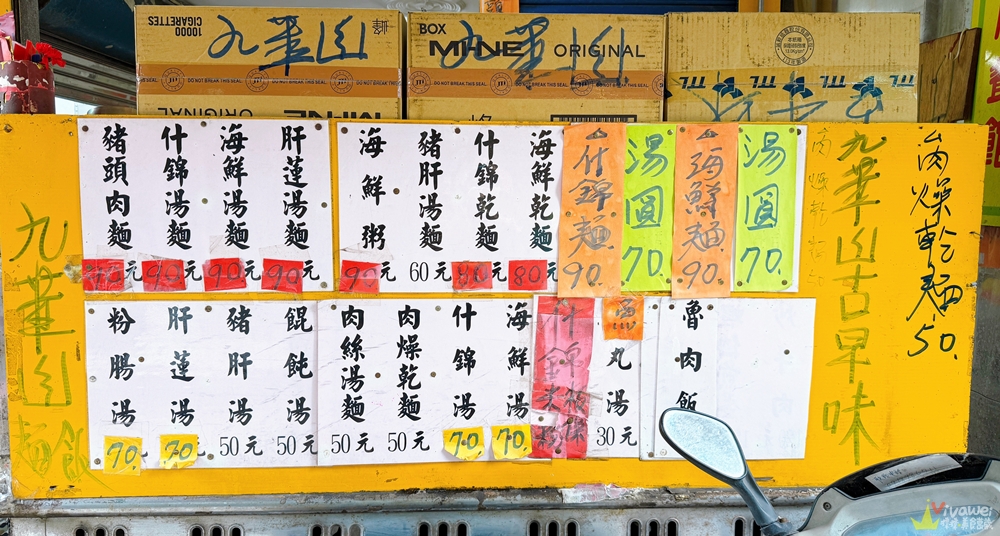 10000
CIGARETTES
九華山
DO NOT BREAK THIS SEAL
BOX
MI-NE ORIGINAL
九華山
DO NOT BREAK THIS SEAL
ORIGINAL
九華山麵飯
豬頭肉麵
什錦湯麵 90元
海鮮湯麵 90元
肝蓮湯麵 90元
海鮮粥 90元
豬肝湯麵 60元
什錦乾麵 80元
海鮮乾麵 80元
什錦麵 90.
湯圓 70.
海鮮麵 90.
湯圓 70.
粉腸湯 70.
肝蓮湯 70.
豬肝湯 50元
餛飩湯 50元
肉絲湯麵 50元
肉燥乾麵 50元
什錦湯 70.
海鮮湯 70.
魚丸湯 30元
魯肉飯
九華山古早味
肉燥乾麵 50.
Vivawei